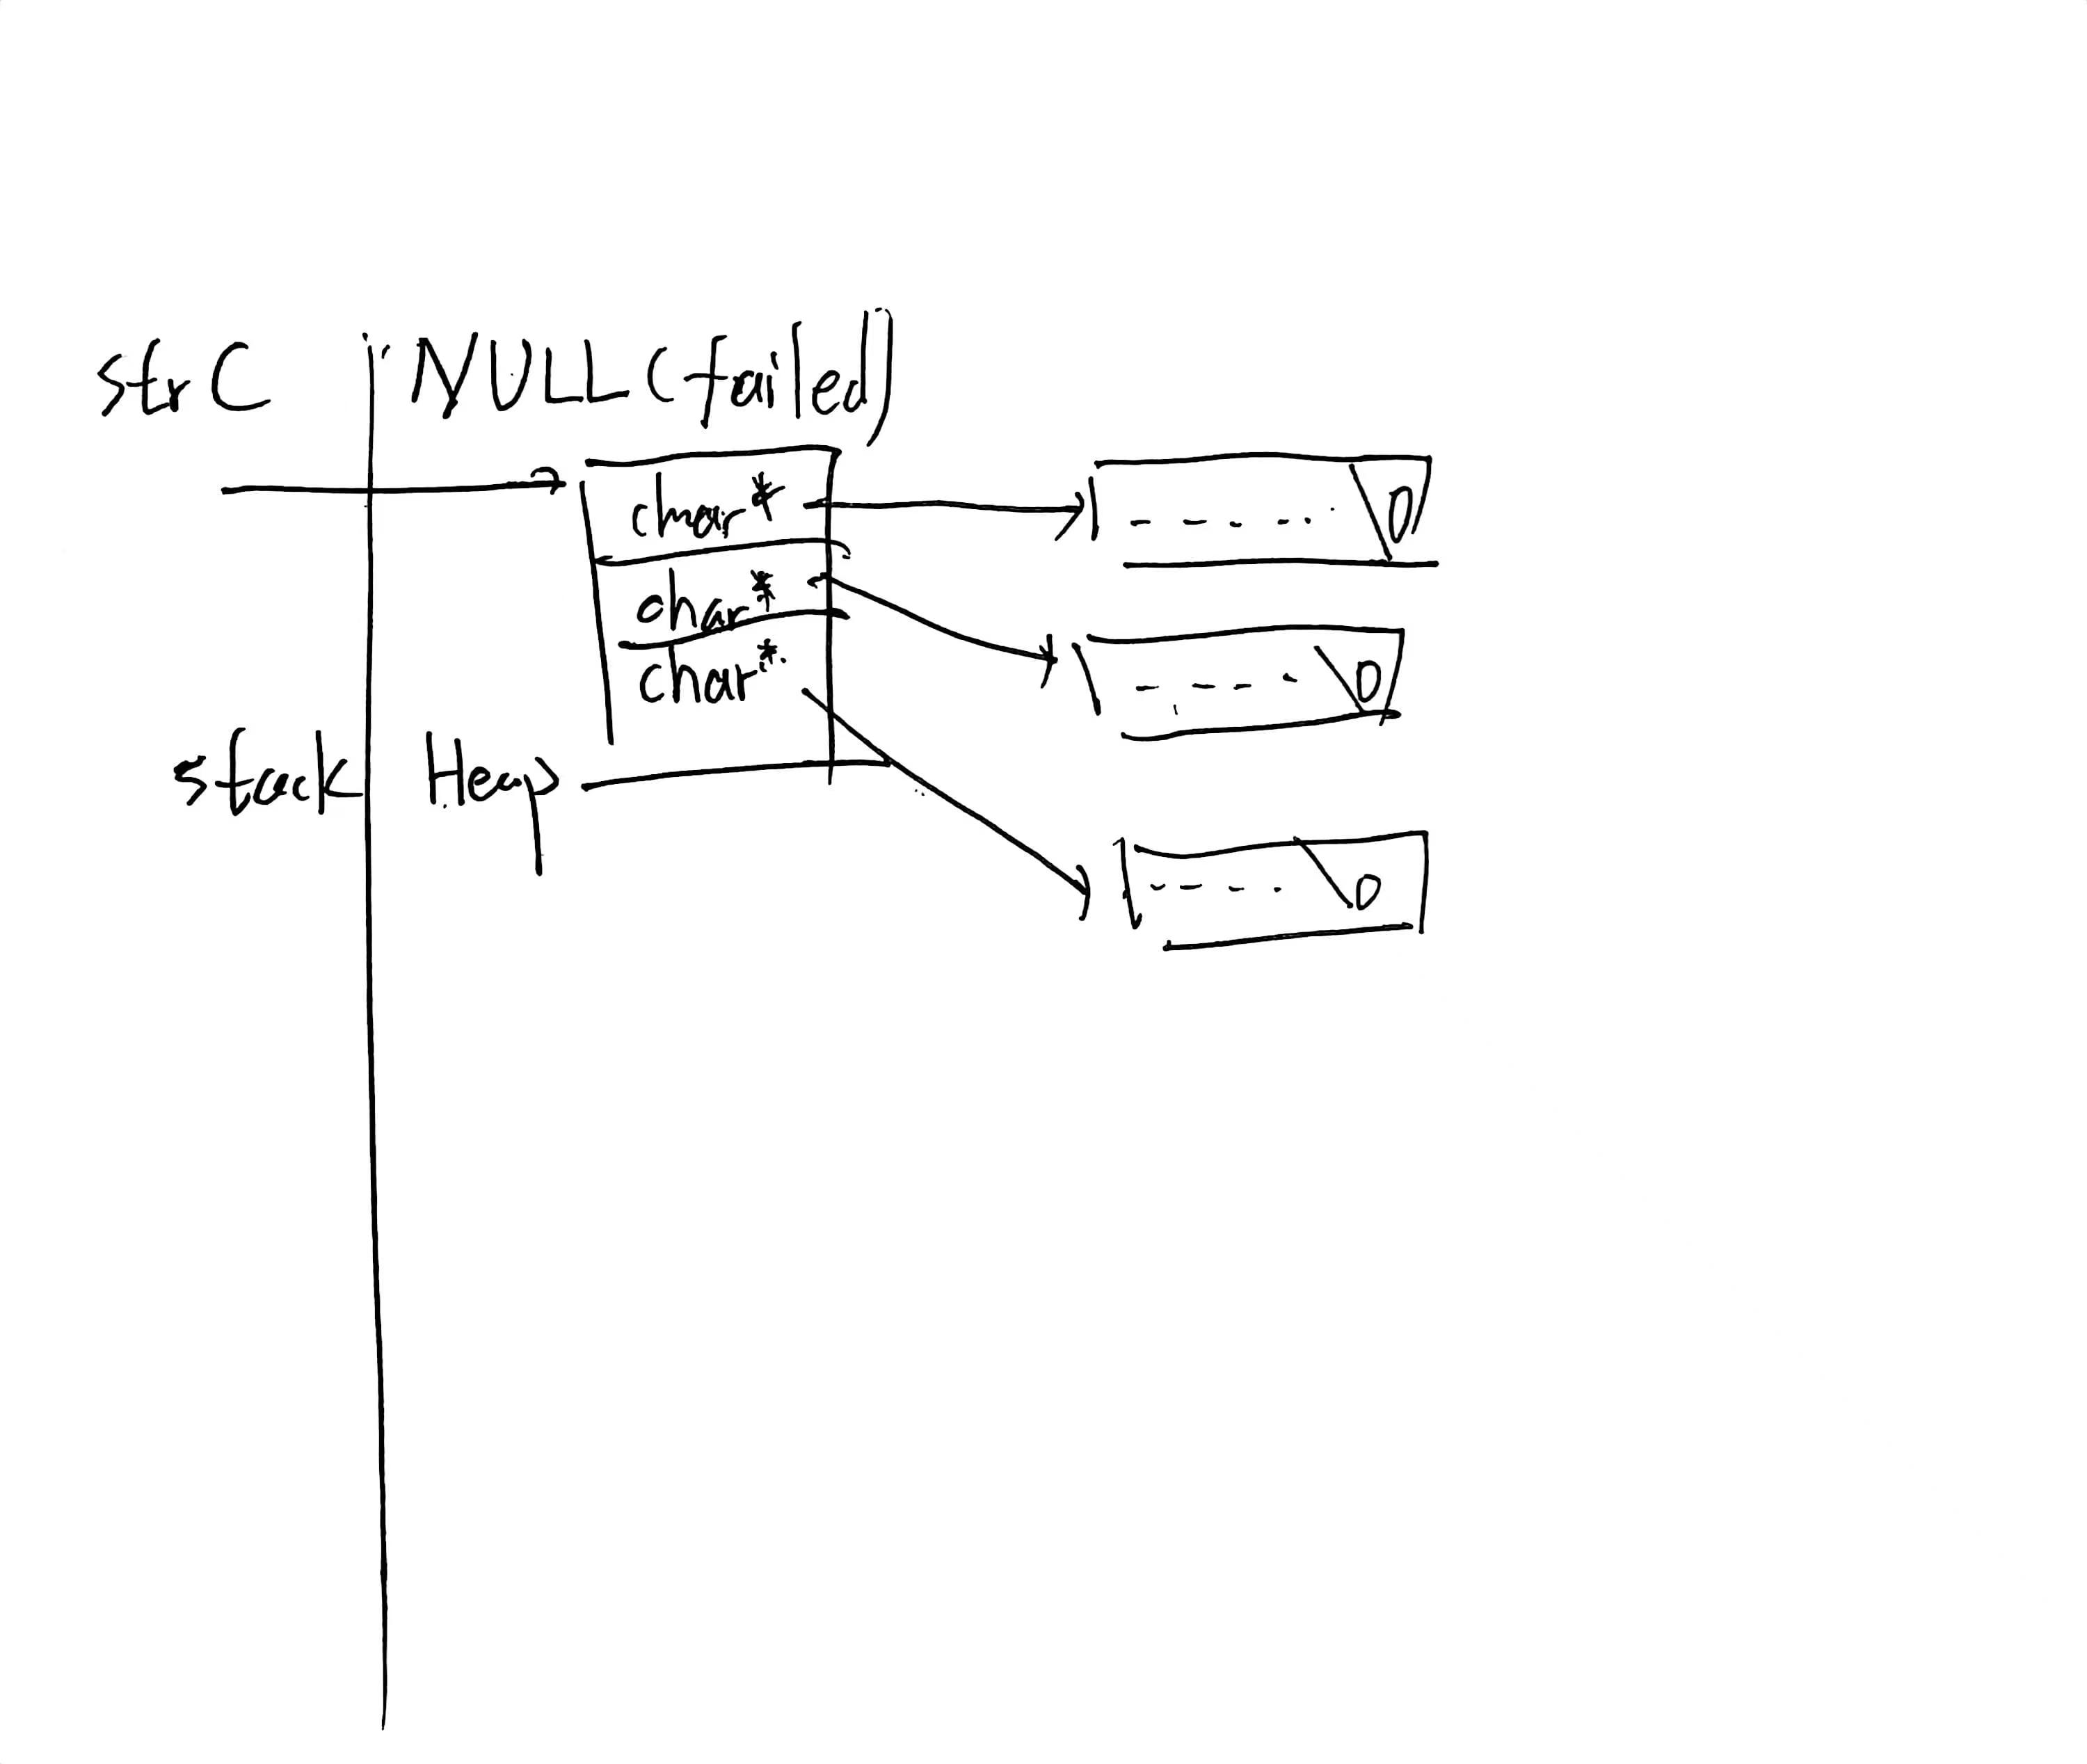 strC NULL (failed)
char*
\0
char*
\0
char*
stack Heap
\0